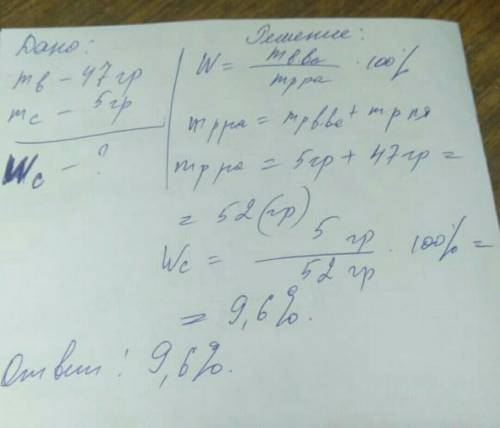 Дано:
mв – 47 гр
mс – 5 гр
Wс – ?
Решение:
W = mв.ва / mрра · 100%
mрра = mрв.ва + mр ля
mрра = 5гр + 47гр =
= 52 (гр)
Wс = 5 гр / 52 гр · 100% =
= 9,6%.
Ответ: 9,6%.